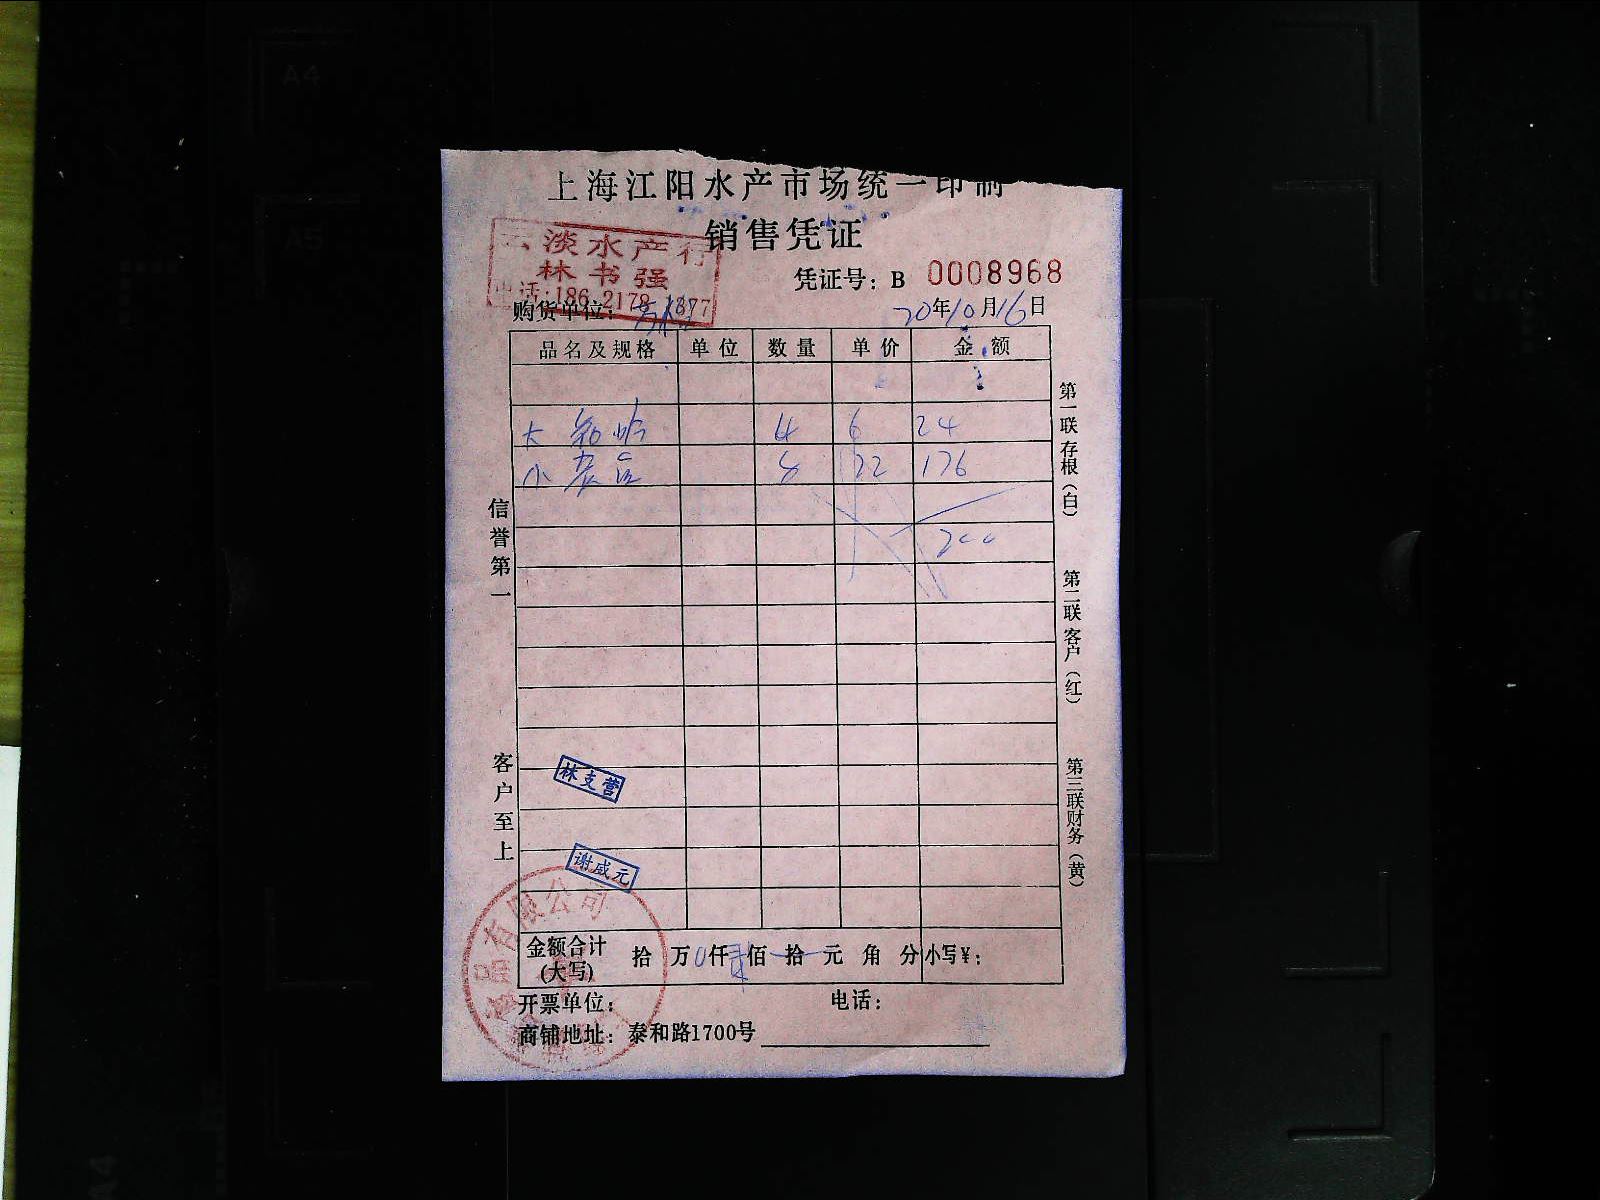 A4
A5
上海江阳水产市场统一印制
销售凭证
云淡水产行
林书强
电话:186 2178 1877
凭证号：B 0008968
购货单位：
20年10月16日
品名及规格 单位 数量 单价 金额
大 蛤 4 6 24
小 8 22 176
200
信誉第一
客户至上
第一联存根（白）
第二联客户（红）
第三联财务（黄）
林支营
谢咸元
有限公司
金额合计
(大写)
拾 万 0 仟 贰 佰 拾 元 角 分 小写¥：
开票单位： 电话：
商铺地址：泰和路1700号
A4